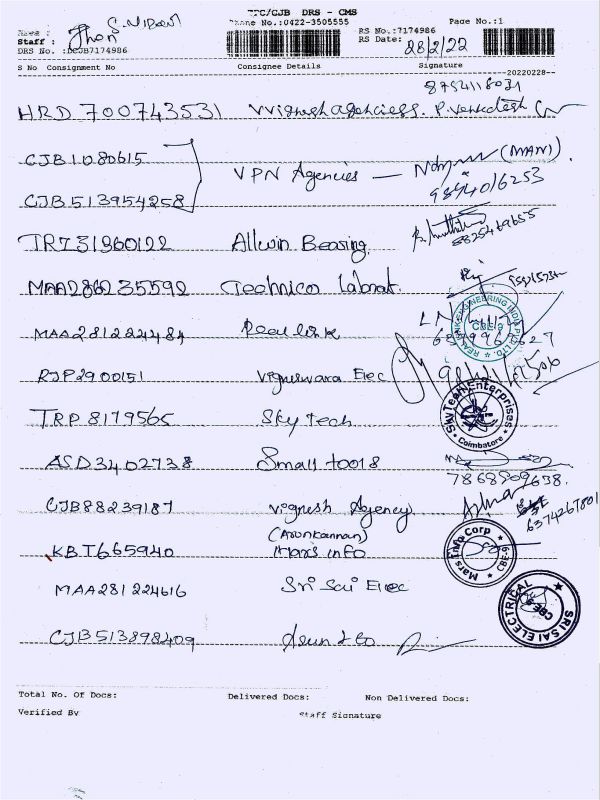 TPC/CJB DRS - CMS
Phone No.:0422-3505555
Page No.:1
Name :
Staff : Jhon
DRS No. :DCJB7174986
RS No.:7174986
RS Date: 28/2/22
S No Consignment No Consignee Details Signature
--20220228--
8754118031
HRD 700743531 Vvignesh agenciess. P. Venkatesh
CJB1080615
VPN Agencies — (MANI)
CJB513954258 9894016253
TRZ31960122 Allwin Bearing
MAA286235592 Technico Laborat.
MAA281224484 Real link
REAL LINK ENGINEERING INDIA PVT LTD.
CBE-9
RJP2900151 Vigneswara Elec
TRP 8179565 Sky Tech
SkyTech Enterprises
Coimbatore
ASD3402738 Small tools
7868909638.
CJB88239187 Vignesh Agency
6374267801
(Arunkannan)
KBT665940 Mars info
Mars Info Corp
CBE-9
MAA281224616 Sri Sai Elec
SRI SAI ELECTRICAL
CBE-9
CJB513898409 Arun & Co
Total No. Of Docs: Delivered Docs: Non Delivered Docs:
Verified By Staff Signature